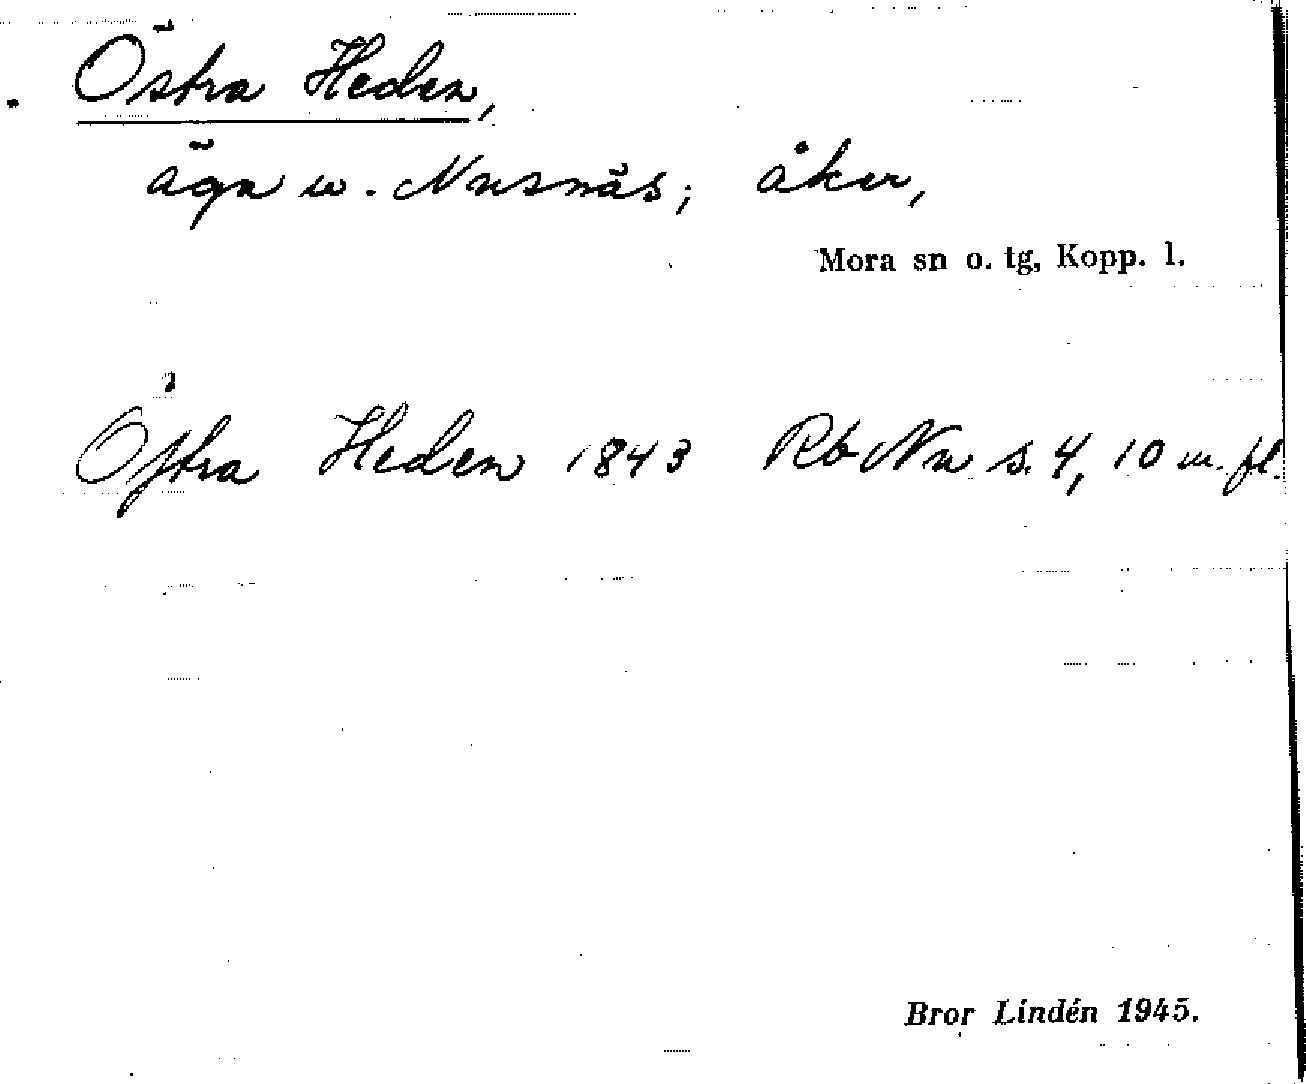 Östra Heden,
ägn u. Nusnäs; åker,
Mora sn o. tg, Kopp. l.
Öſtra Heden 1843 Rb Nu s. 4, 10 m. fl.
Bror Lindén 1945.